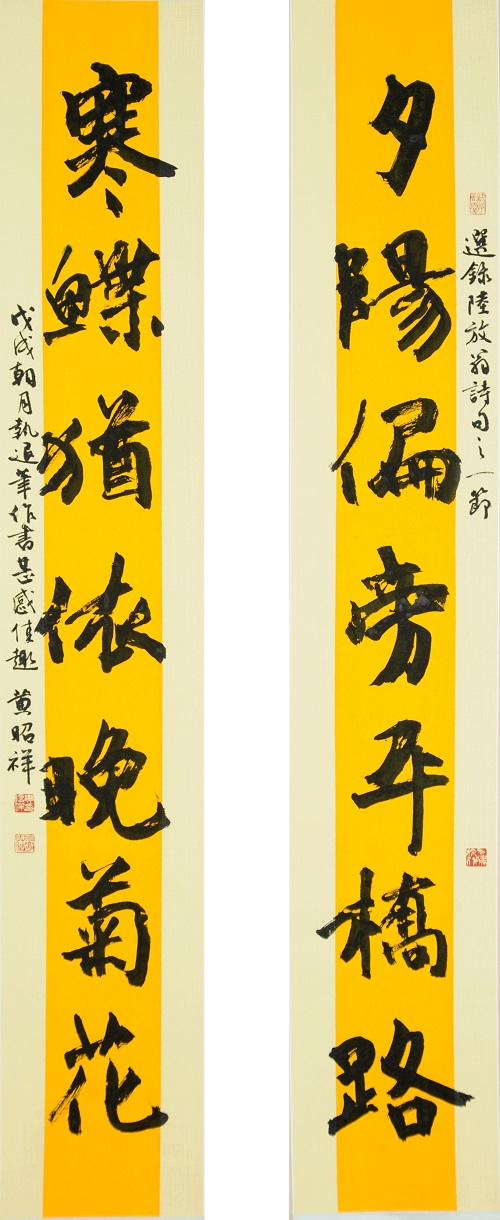 選錄陸放翁詩句之一節
夕陽偏旁平橋路
寒蝶猶依晚菊花
戊戌朝月執退筆作書甚感佳趣 黃昭祥